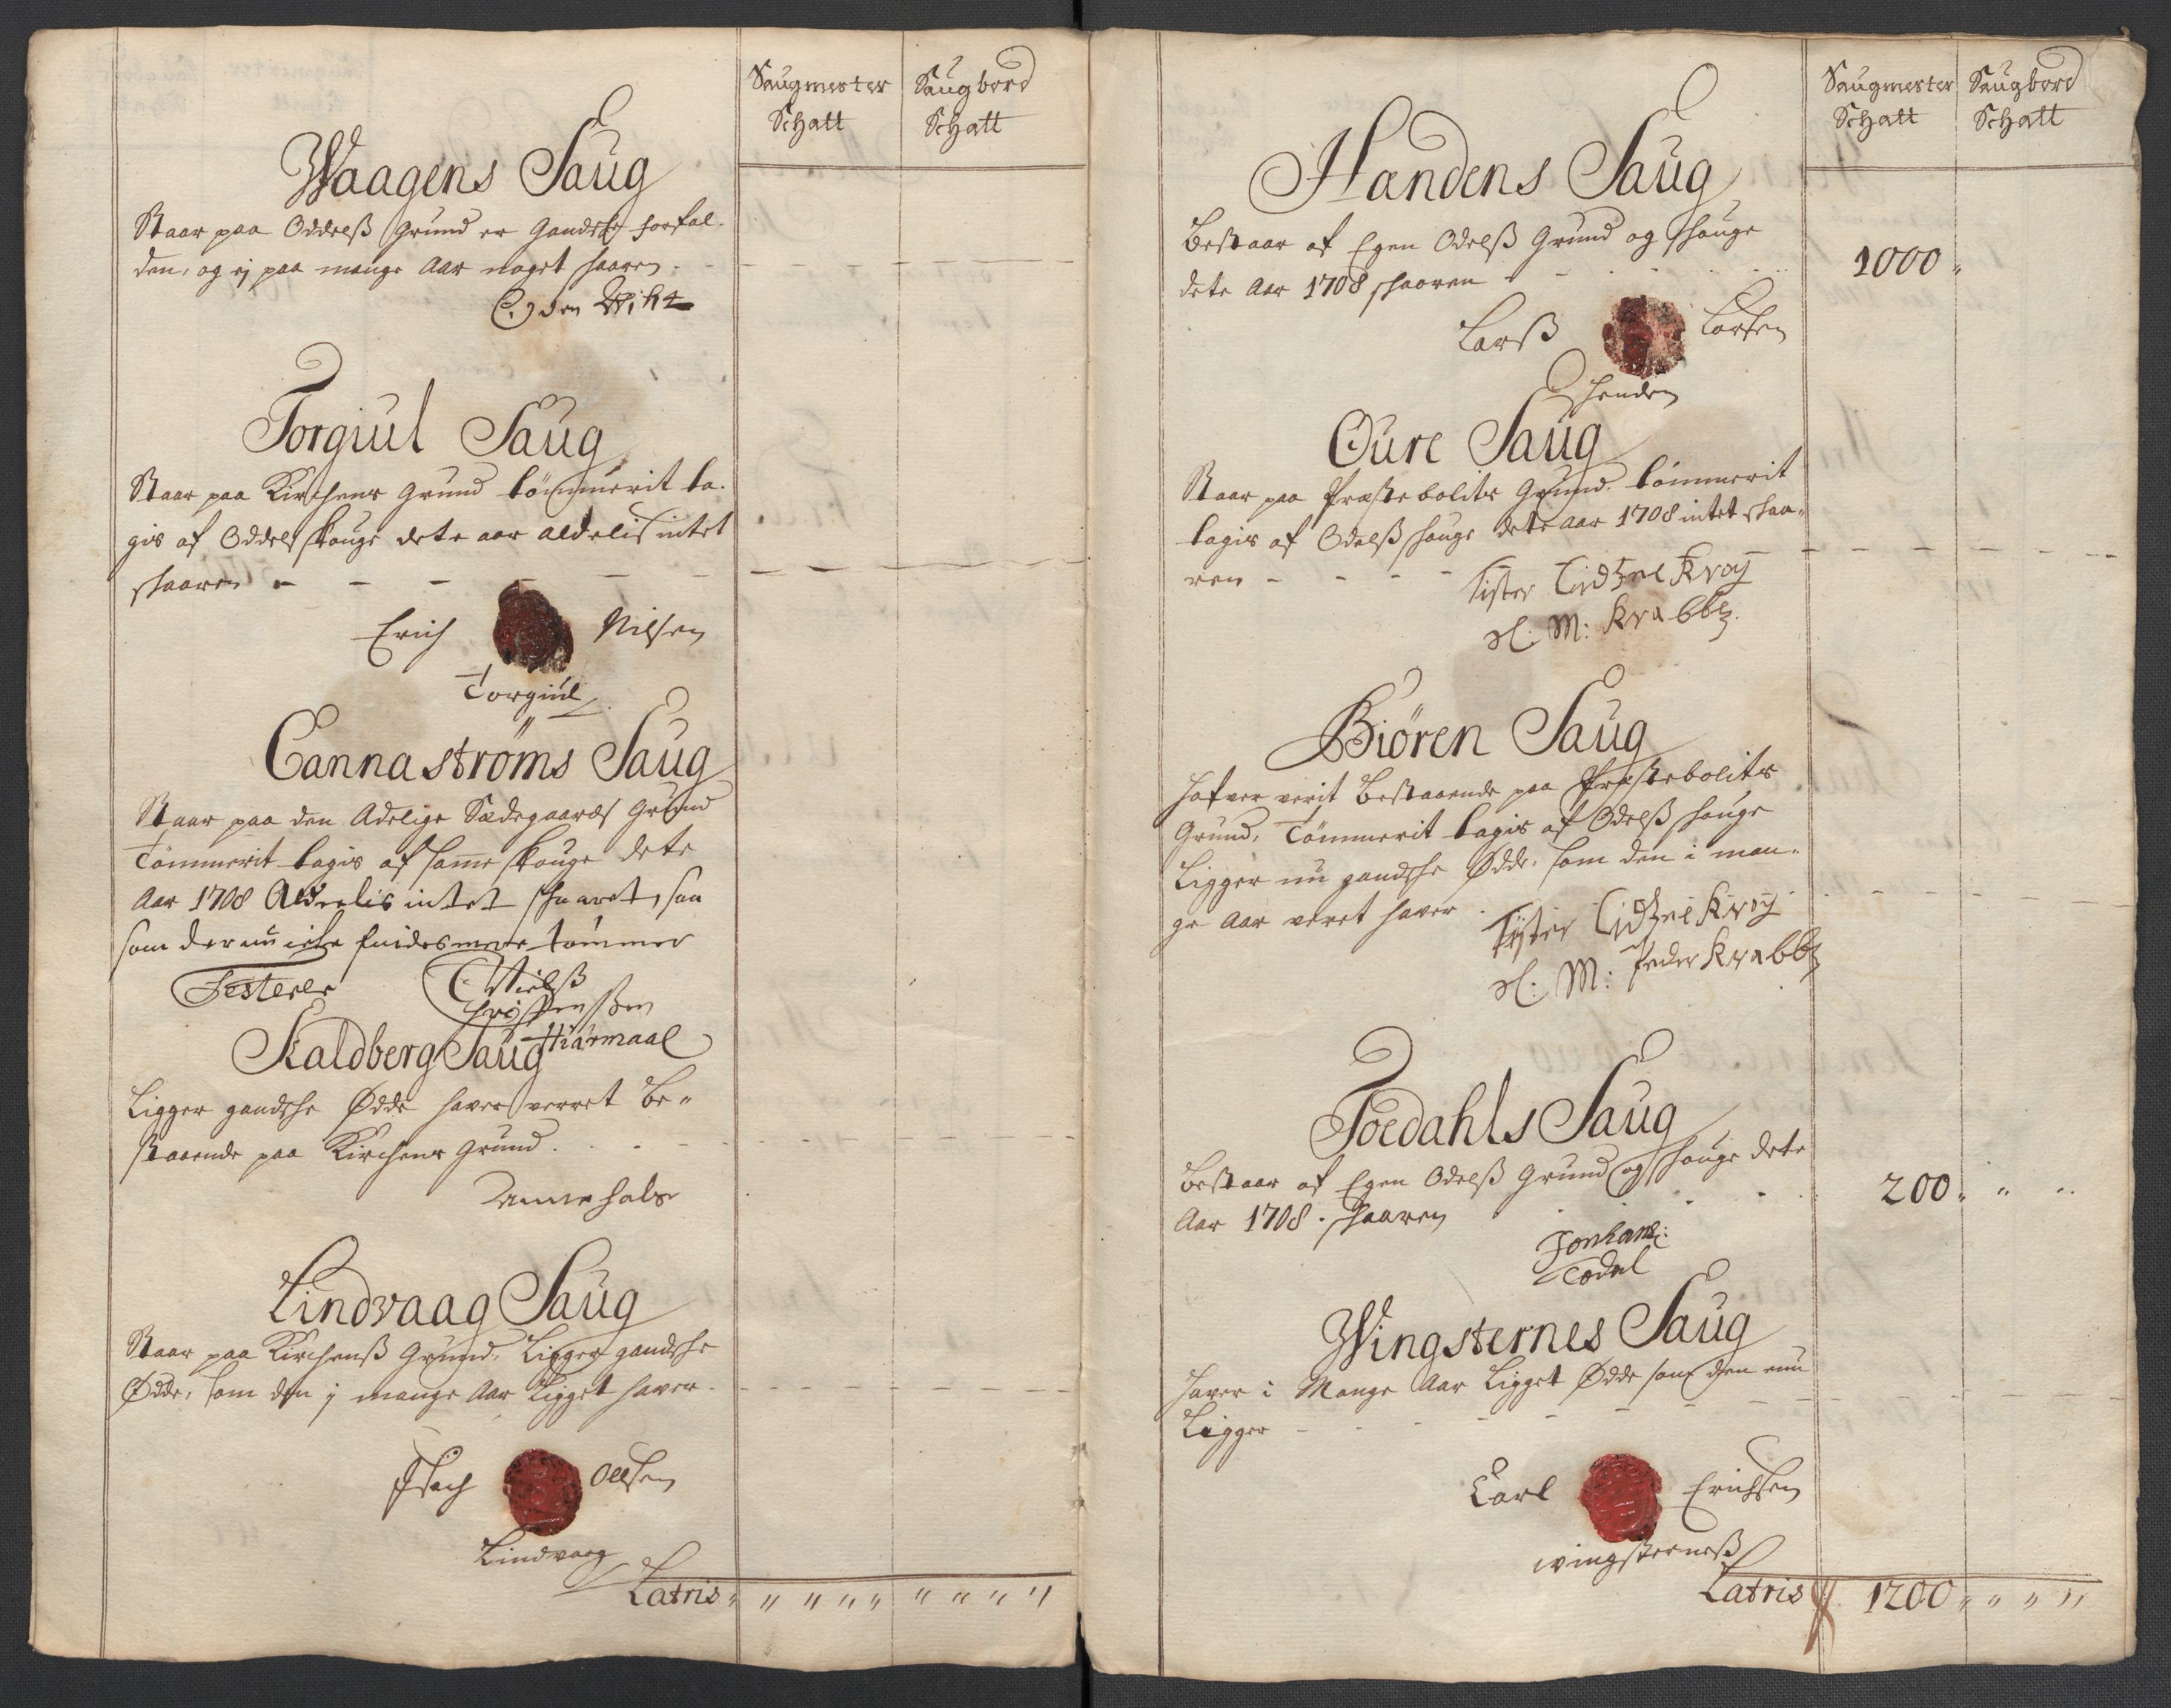 Saugmester Saugbord
Schatt Schatt
Waagens Saug
Staar paa Oddelß Grund er Gandske forfal-
den, og ej paa mange Aar noget skaaren
Torgiul Saug
Staar paa Kirchens Grund tömmerit ta-
gis af Oddelß skouge dete aar aldelis intet
skaaren
Erich Nilsen
Torgiul
Cannaströms Saug
Staar paa den Adelige Sædegaards Grund
Tömmerit tagis af samme skouge dete
Aar 1708 Aldelis intet skaaret, saa
som der nu icke findes mere tömmer
Testerer Nielß
Christensßen
Hiarmaal
Skaldberg Saug
Ligger gandske Ødde haver verret Be-
staaende paa Kirchens Grund.
Lindvaag Saug
Staar paa Kirchenß Grund, Ligger gandske
Ødde, som den j mange Aar Ligget haver
Isach Ollsen
Lindvaag
Latris
Saugmester Saugbord
Schatt Schatt
Handens Saug
Bestaar af Egen Odelß Grund og skouge
dete Aar 1708 skaaren 1000
Larß Larsen
Henden
Oure Saug
Staar paa Præstebolits Grund tömmerit
tagis af Odelß skouge dete Aar 1708 intet skaa-
ren
M: Krabbe
Biören Saug
Hafver verit Bestaaende paa Præstebolits
Grund, Tömmerit tagis af Odelß skouge
Ligger nu gandske Ødde, som den i man-
ge Aar veret haver
M: Peder Krabbe
Toedahls Saug
Bestaar af Egen Odelß Grund og skouge dete
Aar 1708. skaaren 200
Todal
Wingsternes Saug
Haver i Mange Aar Ligget Ødde som den nu
Ligger
Carl Erichsen
wingsterneß
Latris 1200